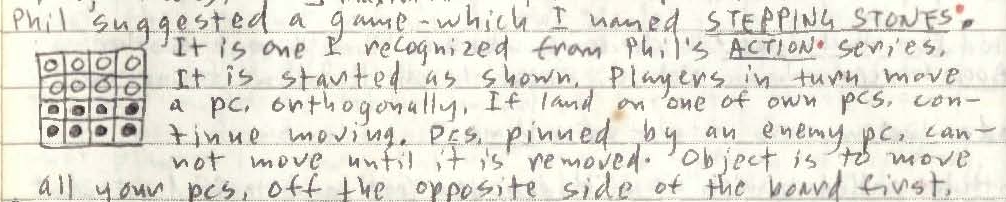 Phil suggested a game - which I named STEPPING STONES.
It is one I recognized from Phil's ACTION series.
It is started as shown. Players in turn move
a pc. orthogonally. If land on one of own pcs. con-
tinue moving. Pcs. pinned by an enemy pc. can-
not move until it is removed. Object is to move
all your pcs. off the opposite side of the board first.